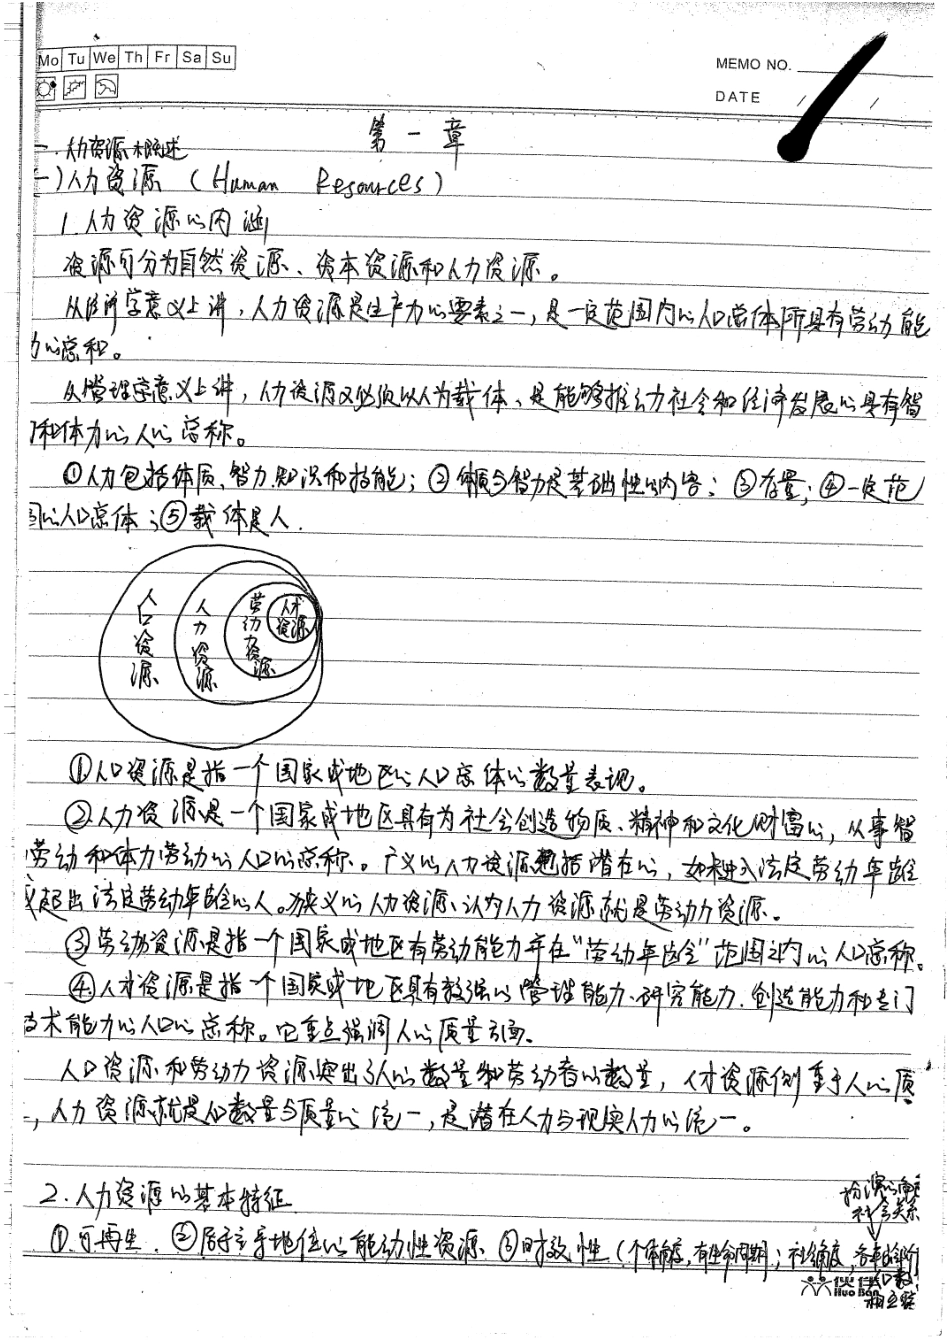 Mo Tu We Th Fr Sa Su
MEMO NO.
DATE / /
第一章
一.人力资源概述
一)人力资源 (Human Resources)
1.人力资源的内涵
资源可分为自然资源、资本资源和人力资源。
从经济学意义上讲,人力资源是生产力的要素之一,是一定范围内的人口总体所具有劳动能
力的总和。
从管理学意义上讲,人力资源又必须以人为载体、是能够推动社会和经济发展的具有智
力和体力的人的总称。
①人力包括体质、智力、知识和技能;②体质与智力是基础性的内容;③存量;④一定范
围的人口总体;⑤载体是人.
人口资源
人力资源
劳动力资源
人才资源
①人口资源是指一个国家或地区的人口总体的数量表现。
②人力资源是一个国家或地区具有为社会创造物质、精神和文化财富的,从事智
劳动和体力劳动的人口的总称。广义的人力资源包括潜在的,如未进入法定劳动年龄
或超出法定劳动年龄的人。狭义的人力资源,认为人力资源就是劳动力资源。
③劳动力资源是指一个国家或地区有劳动能力并在“劳动年龄”范围之内的人口总称。
④人才资源是指一个国家或地区具有较强的管理能力、研究能力、创造能力和专门
技术能力的人口的总称。它重点强调人的质量方面。
人口资源和劳动力资源突出了人的数量和劳动者的数量,人才资源侧重于人的质
,人力资源就是人口数量与质量的统一,是潜在人力与现实人力的统一。
2.人力资源的基本特征
扮演的角色
社会关系
①.可再生.②居于主导地位的能动性资源 ③时效性(个体角度,有生命周期;社会角度,各年龄阶
人口数
相互
伙伴
Huo Ban